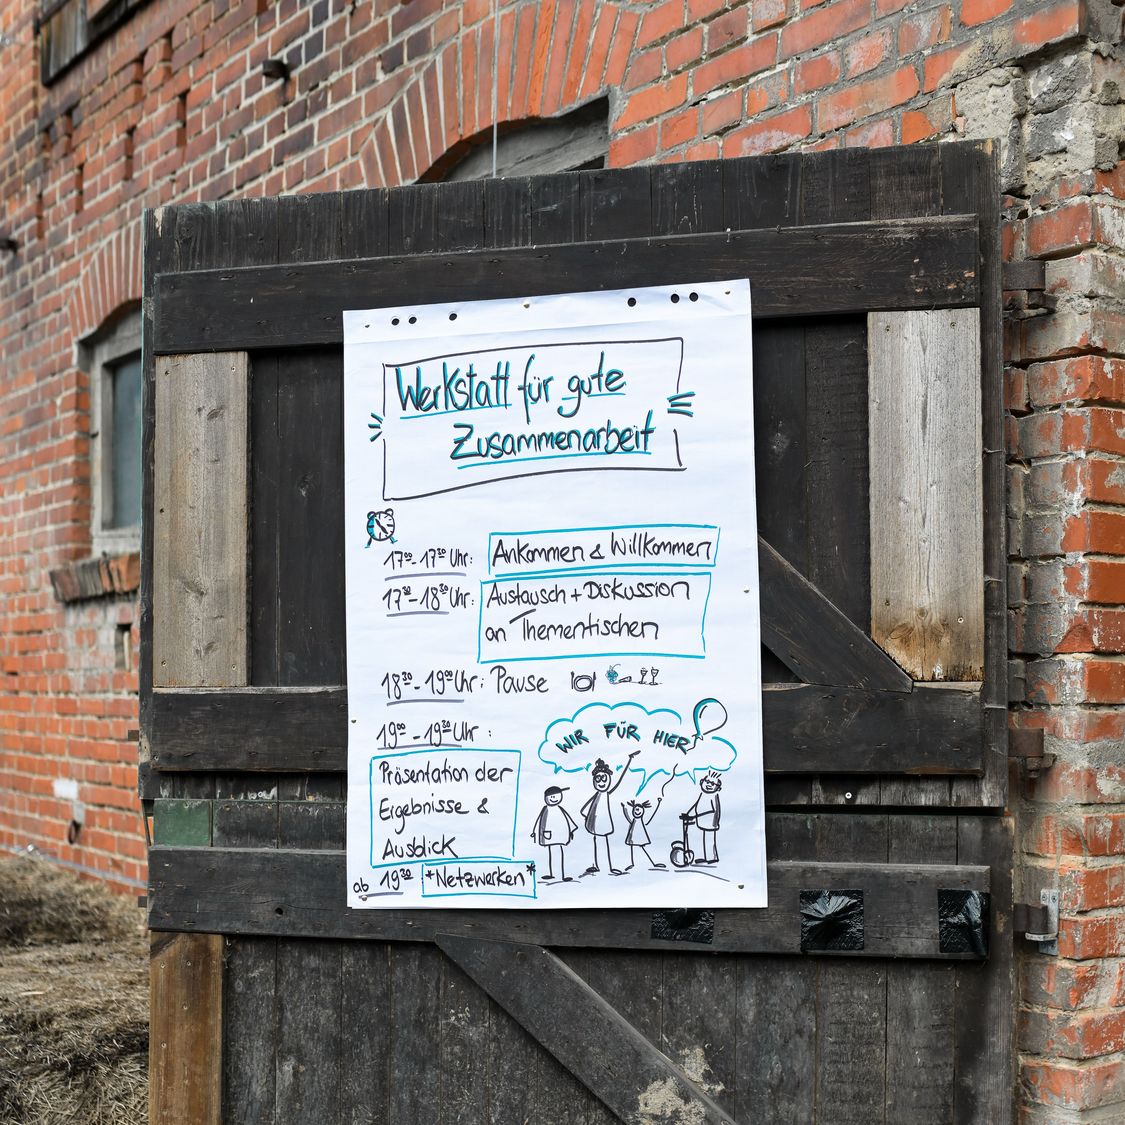 Werkstatt für gute
Zusammenarbeit
17⁰⁰-17³⁰ Uhr: Ankommen & Willkommen
17³⁰-18³⁰ Uhr: Austausch + Diskussion
an Thementischen
18³⁰-19⁰⁰ Uhr: Pause
19⁰⁰-19³⁰ Uhr:
Präsentation der
Ergebnisse &
Ausblick
ab 19³⁰ *Netzwerken*
WIR FÜR HIER